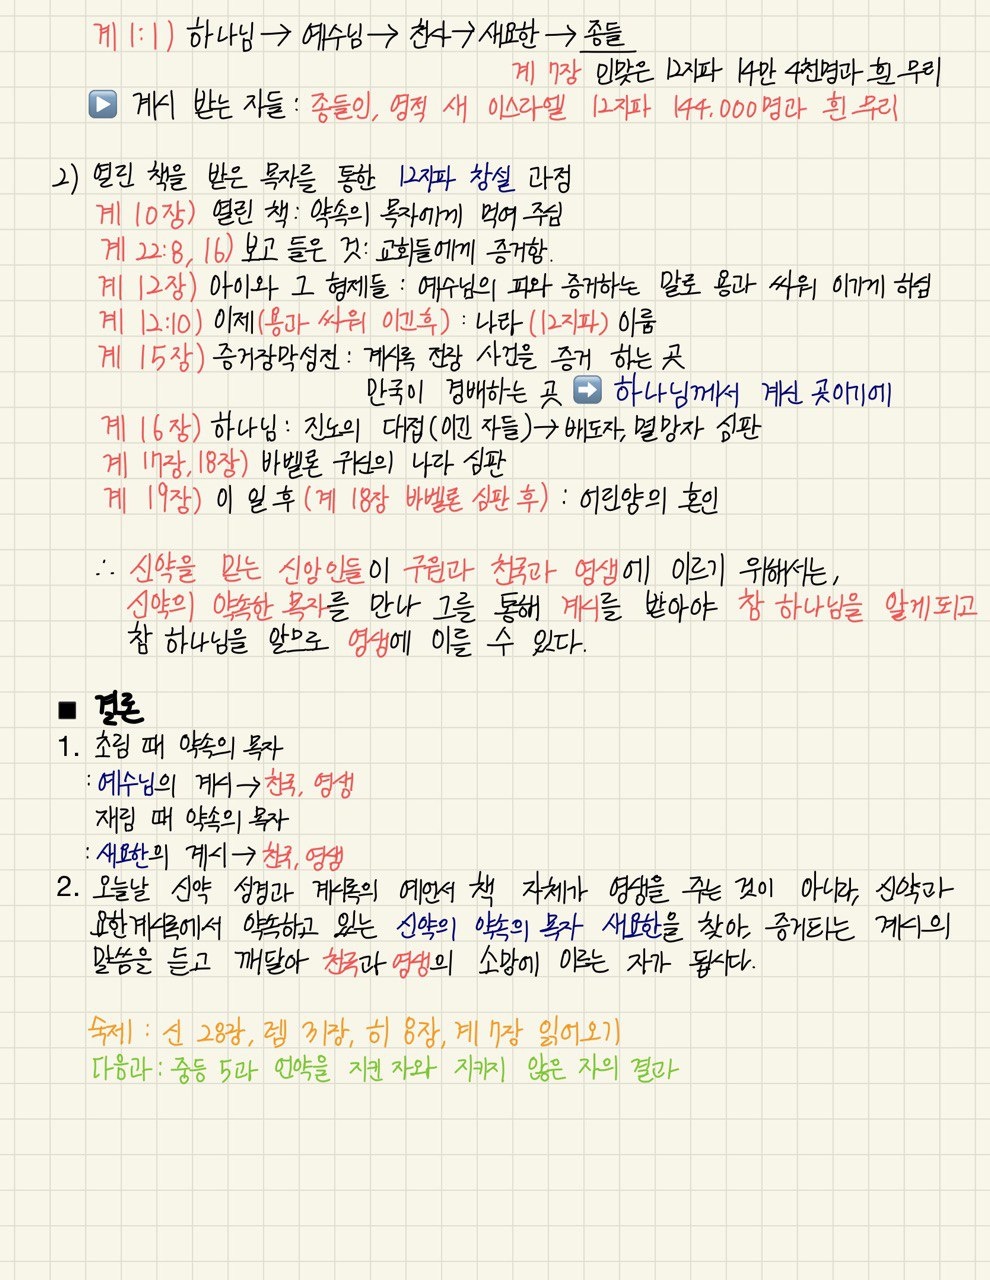 계 1:1) 하나님 → 예수님 → 천사 → 새요한 → 종들
계 7장 인맞은 12지파 14만 4천명과 흰 무리
▶ 계시 받는 자들 : 종들인, 영적 새 이스라엘 12지파 144.000명과 흰 무리
2) 열린 책을 받은 목자를 통한 12지파 창설 과정
계 10장) 열린 책 : 약속의 목자에게 먹여 주심
계 22:8, 16) 보고 들은 것 : 교회들에게 증거함.
계 12장) 아이와 그 형제들 : 예수님의 피와 증거하는 말로 용과 싸워 이기게 하심
계 12:10) 이제(용과 싸워 이긴후) : 나라 (12지파) 이룸
계 15장) 증거장막성전 : 계시록 전장 사건을 증거 하는 곳
만국이 경배하는 곳 ➡ 하나님께서 계신 곳이기에
계 16장) 하나님 : 진노의 대접(이긴 자들) → 배도자, 멸망자 심판
계 17장, 18장) 바벨론 귀신의 나라 심판
계 19장) 이 일 후 (계 18장 바벨론 심판 후) : 어린양의 혼인
∴ 신약을 믿는 신앙인들이 구원과 천국과 영생에 이르기 위해서는,
신약의 약속한 목자를 만나 그를 통해 계시를 받아야 참 하나님을 알게되고
참 하나님을 앎으로 영생에 이를 수 있다.
■ 결론
1. 초림 때 약속의 목자
: 예수님의 계시 → 천국, 영생
재림 때 약속의 목자
: 새요한의 계시 → 천국, 영생
2. 오늘날 신약 성경과 계시록의 예언서 책 자체가 영생을 주는 것이 아니라, 신약과
요한계시록에서 약속하고 있는 신약의 약속의 목자 새요한을 찾아, 증거되는 계시의
말씀을 듣고 깨달아 천국과 영생의 소망에 이르는 자가 됩시다.
숙제 : 신 28장, 렘 31장, 히 8장, 계 7장 읽어오기
다음과 : 중등 5과 언약을 지킨 자와 지키지 않은 자의 결과